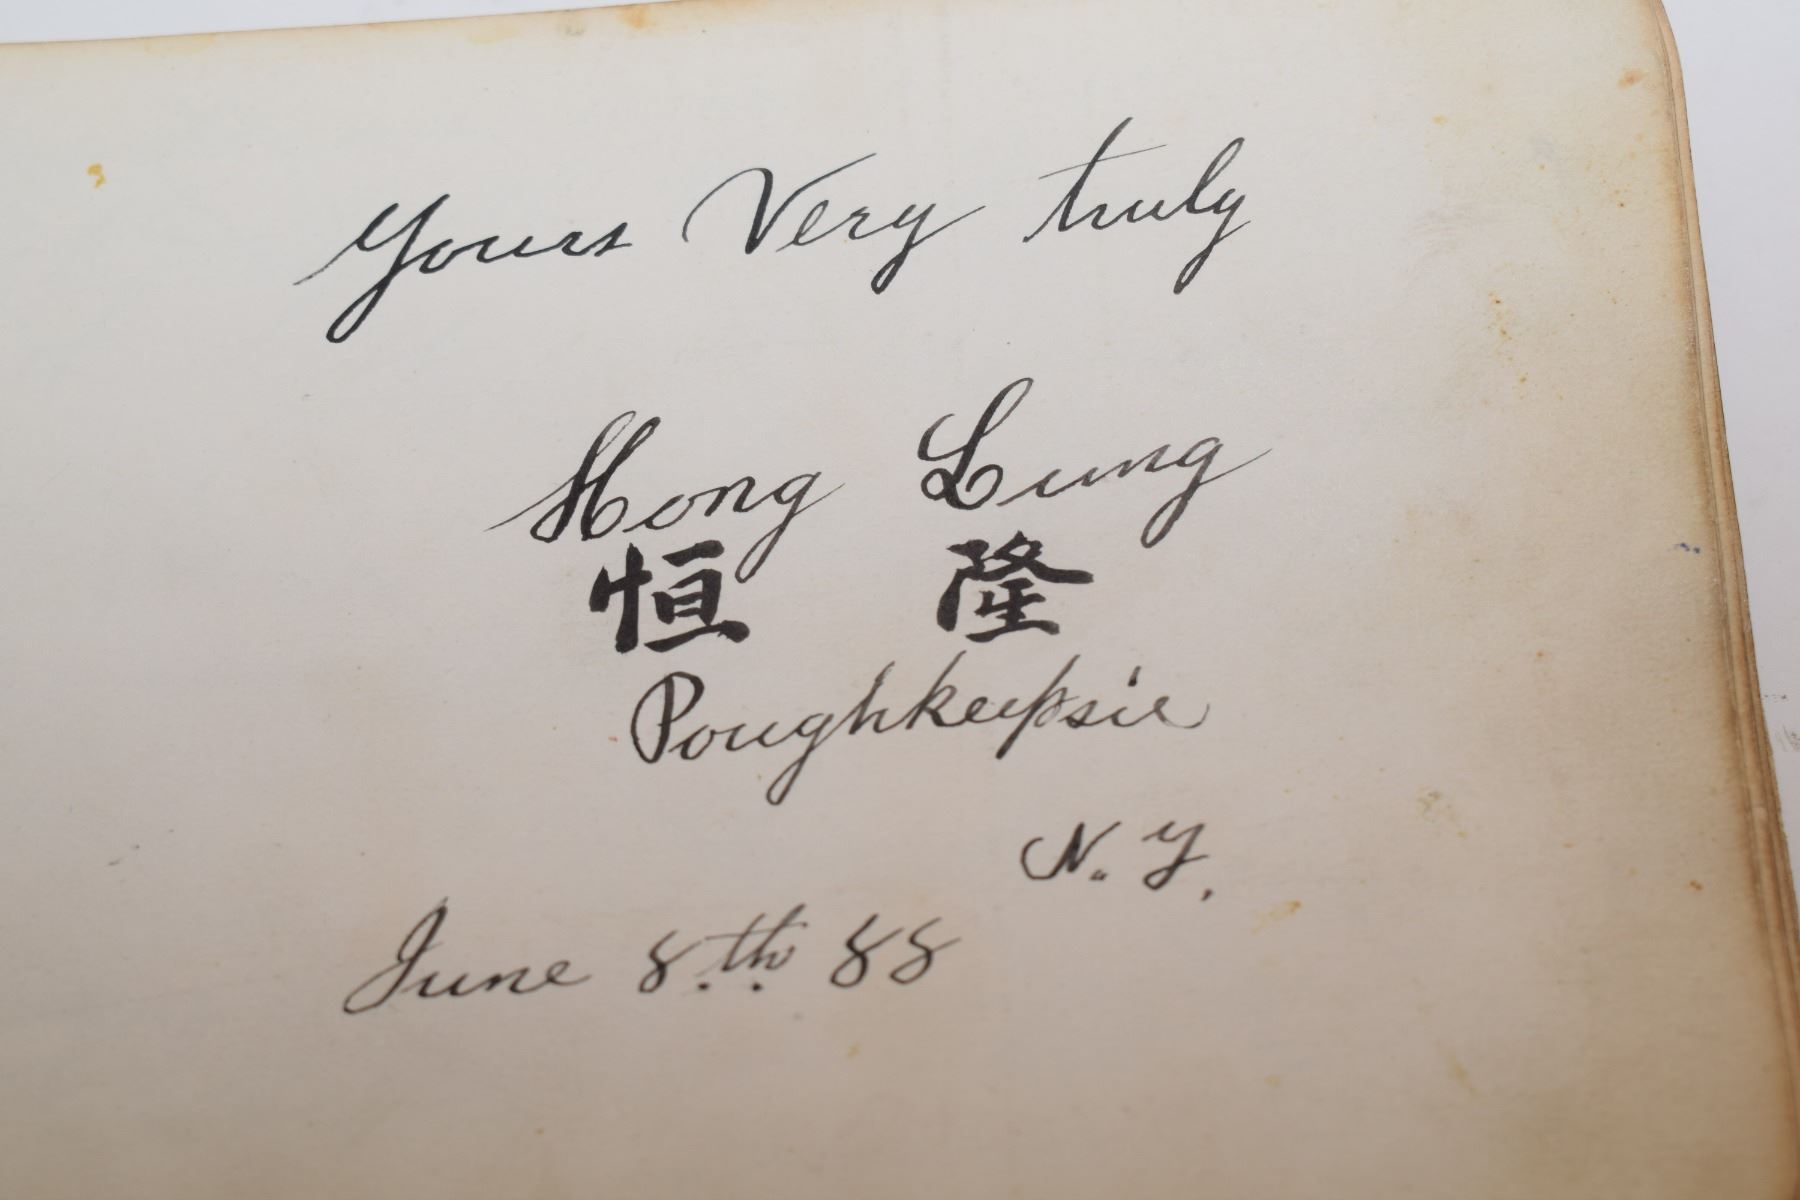 Yours Very truly
Hong Lung
恒 隆
Poughkeepsie
N. Y.
June 8th. 88